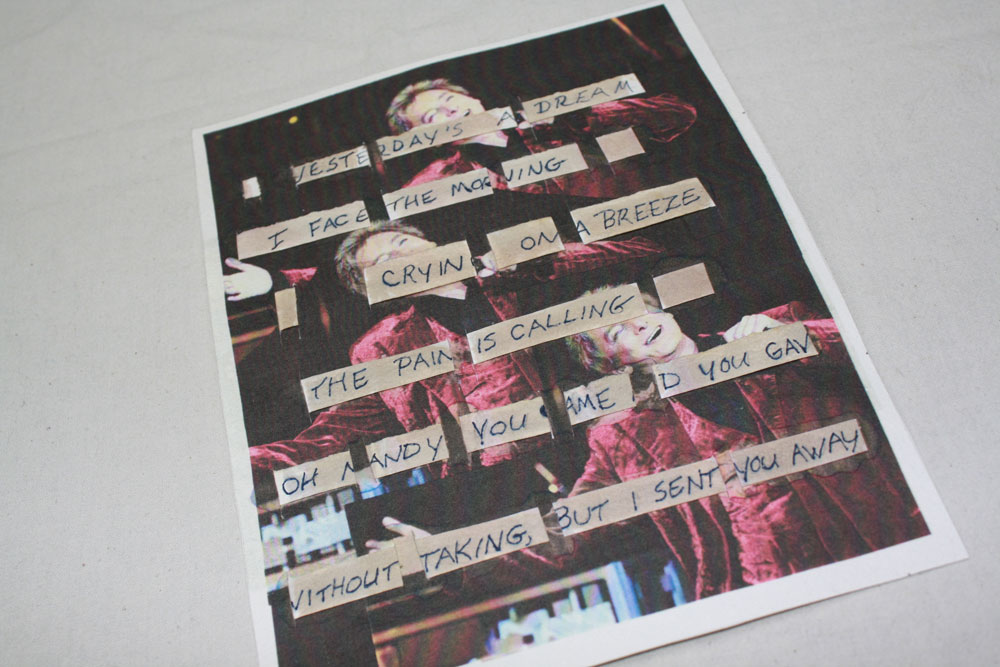 YESTERDAY'S A DREAM
I FACE THE MORNING
CRYIN ON A BREEZE
THE PAIN IS CALLING
OH MANDY YOU CAME AND YOU GAV
WITHOUT TAKING, BUT I SENT YOU AWAY